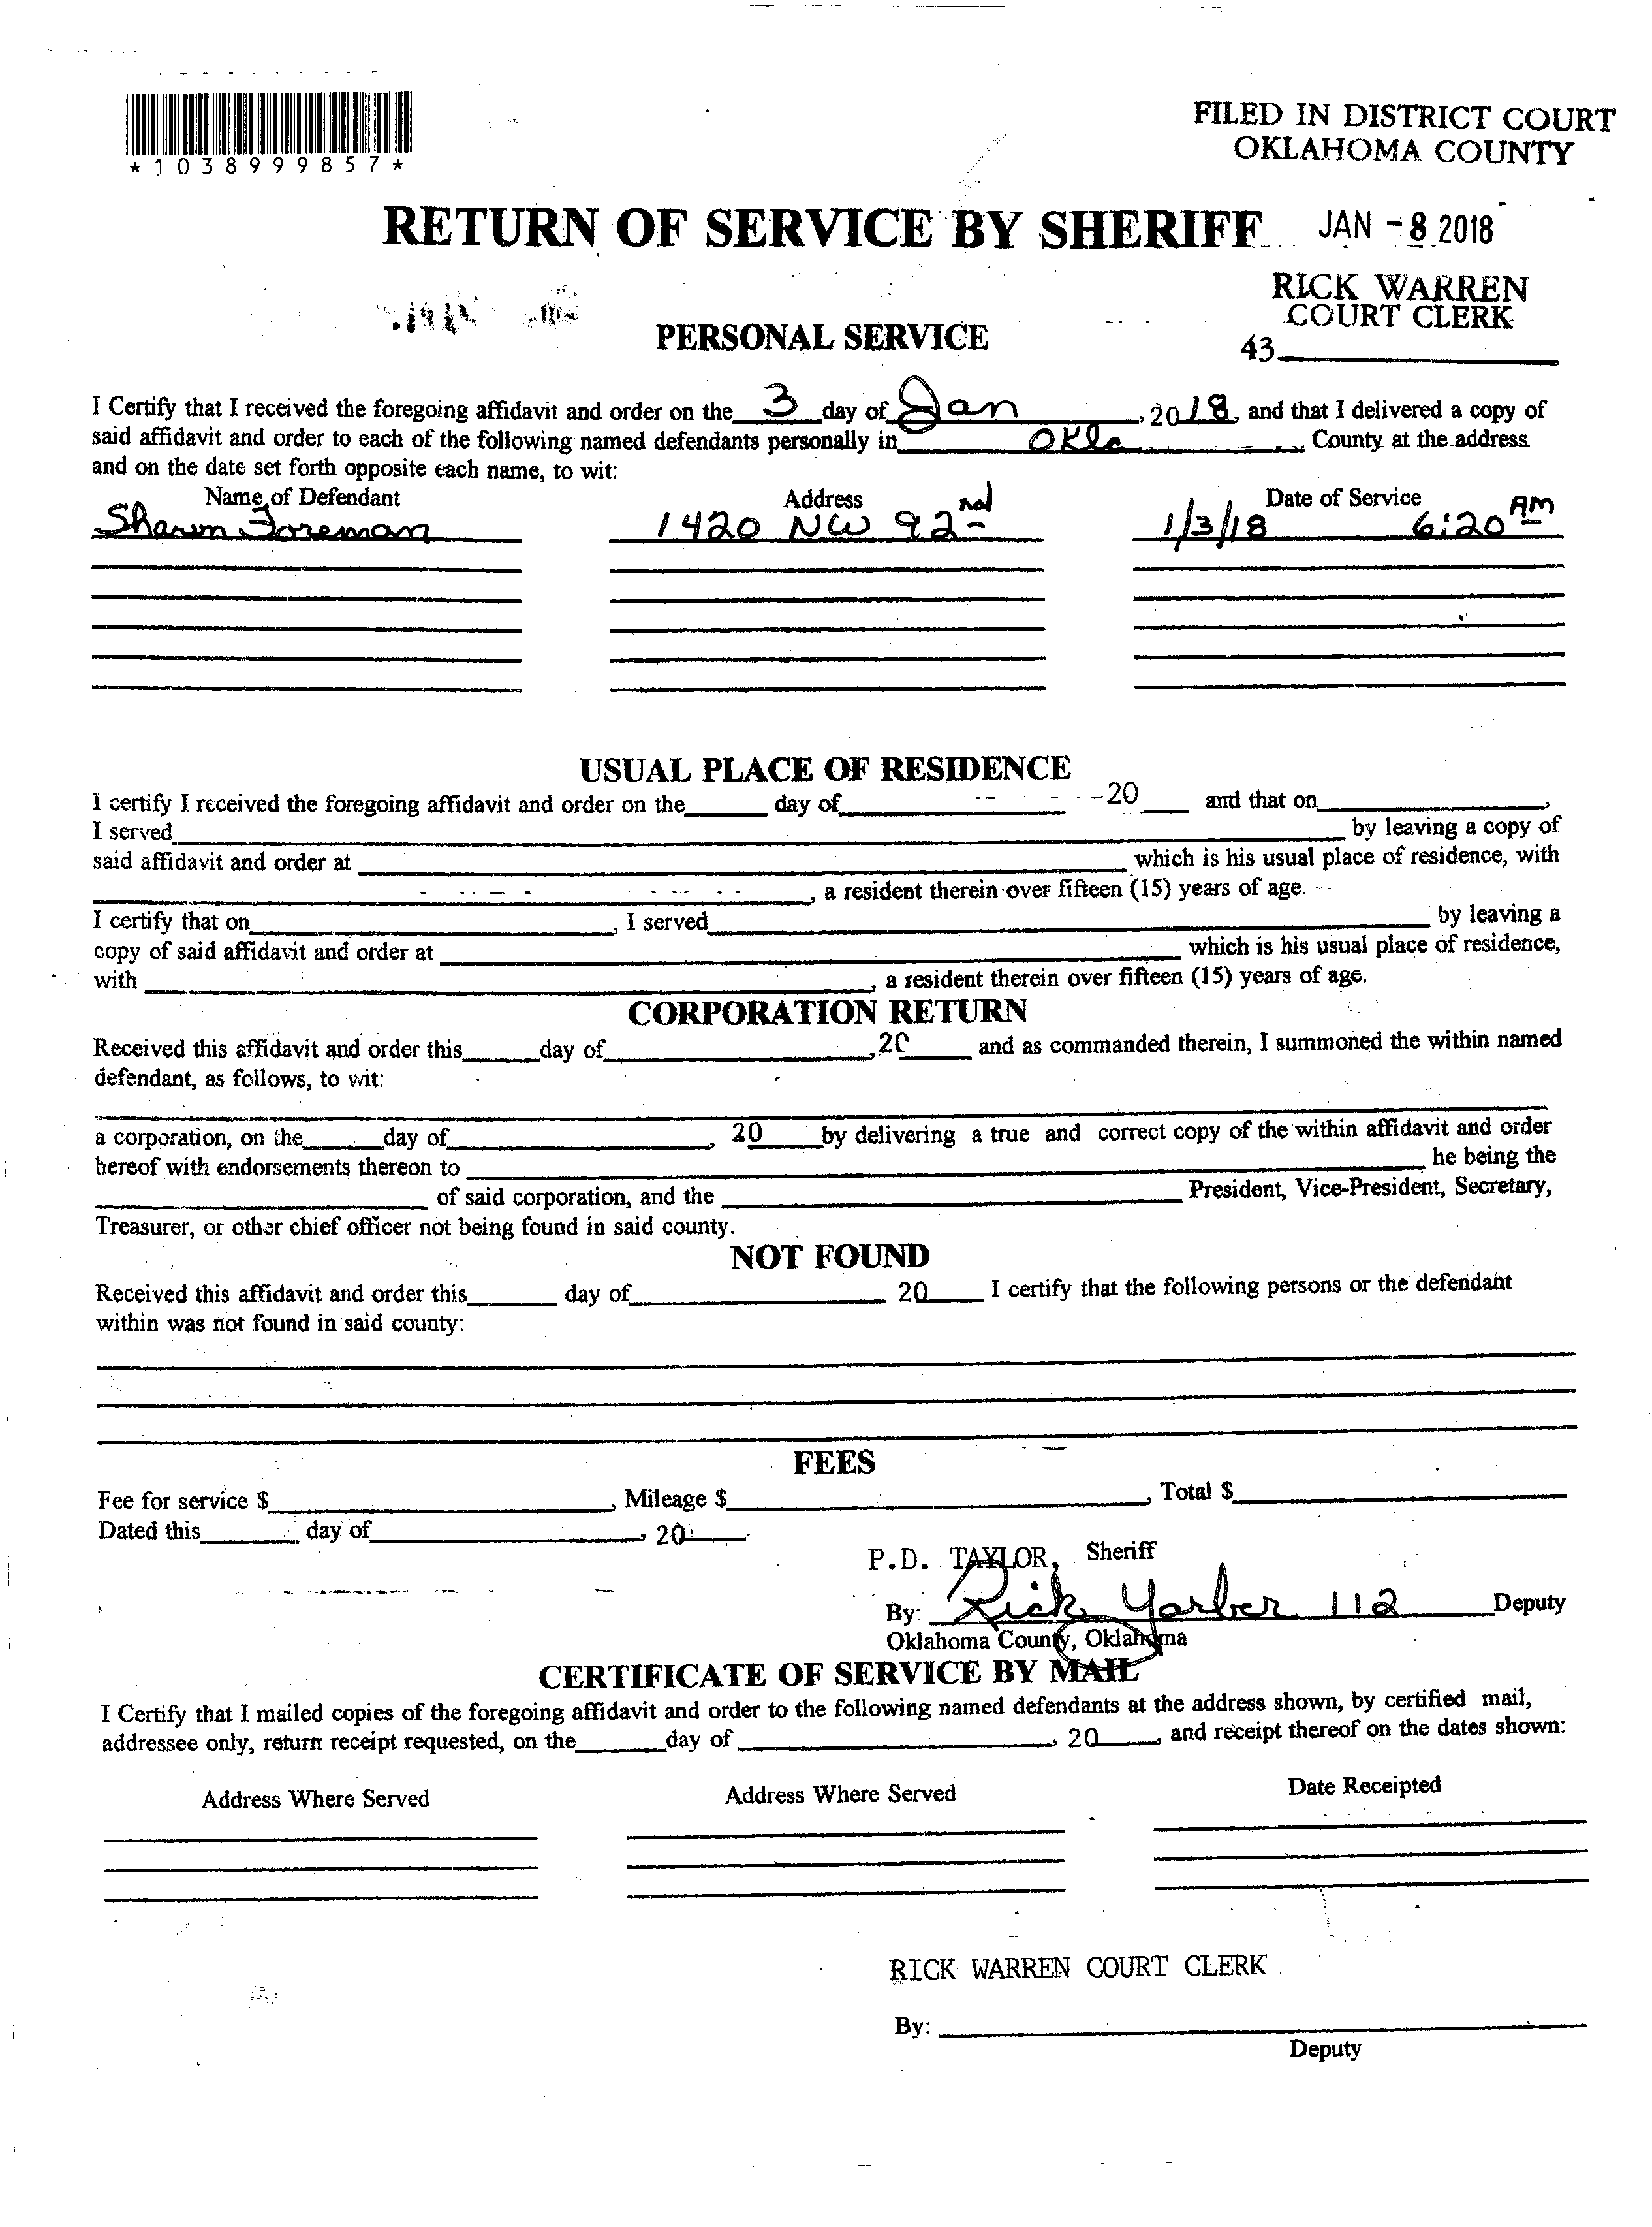 *1038999857*
FILED IN DISTRICT COURT
OKLAHOMA COUNTY
RETURN OF SERVICE BY SHERIFF JAN -8 2018
RICK WARREN
COURT CLERK
43
PERSONAL SERVICE
I Certify that I received the foregoing affidavit and order on the 3 day of Jan, 2018, and that I delivered a copy of
said affidavit and order to each of the following named defendants personally in Okla County at the address
and on the date set forth opposite each name, to wit:
Name of Defendant Address Date of Service
Sharon Foreman 1420 NW 92nd 1/3/18 6:20 AM
USUAL PLACE OF RESIDENCE
I certify I received the foregoing affidavit and order on the day of 20 and that on ,
I served by leaving a copy of
said affidavit and order at which is his usual place of residence, with
, a resident therein over fifteen (15) years of age.
I certify that on , I served by leaving a
copy of said affidavit and order at which is his usual place of residence,
with , a resident therein over fifteen (15) years of age.
CORPORATION RETURN
Received this affidavit and order this day of ,20 and as commanded therein, I summoned the within named
defendant, as follows, to wit:
a corporation, on the day of , 20 by delivering a true and correct copy of the within affidavit and order
hereof with endorsements thereon to he being the
of said corporation, and the President, Vice-President, Secretary,
Treasurer, or other chief officer not being found in said county.
NOT FOUND
Received this affidavit and order this day of 20 I certify that the following persons or the defendant
within was not found in said county:
FEES
Fee for service $ , Mileage $ , Total $
Dated this , day of , 20 .
P.D. TAYLOR, Sheriff
By: Rick Yarber 112 Deputy
Oklahoma County, Oklahoma
CERTIFICATE OF SERVICE BY MAIL
I Certify that I mailed copies of the foregoing affidavit and order to the following named defendants at the address shown, by certified mail,
addressee only, return receipt requested, on the day of , 20 , and receipt thereof on the dates shown:
Address Where Served Address Where Served Date Receipted
RICK WARREN COURT CLERK
By:
Deputy